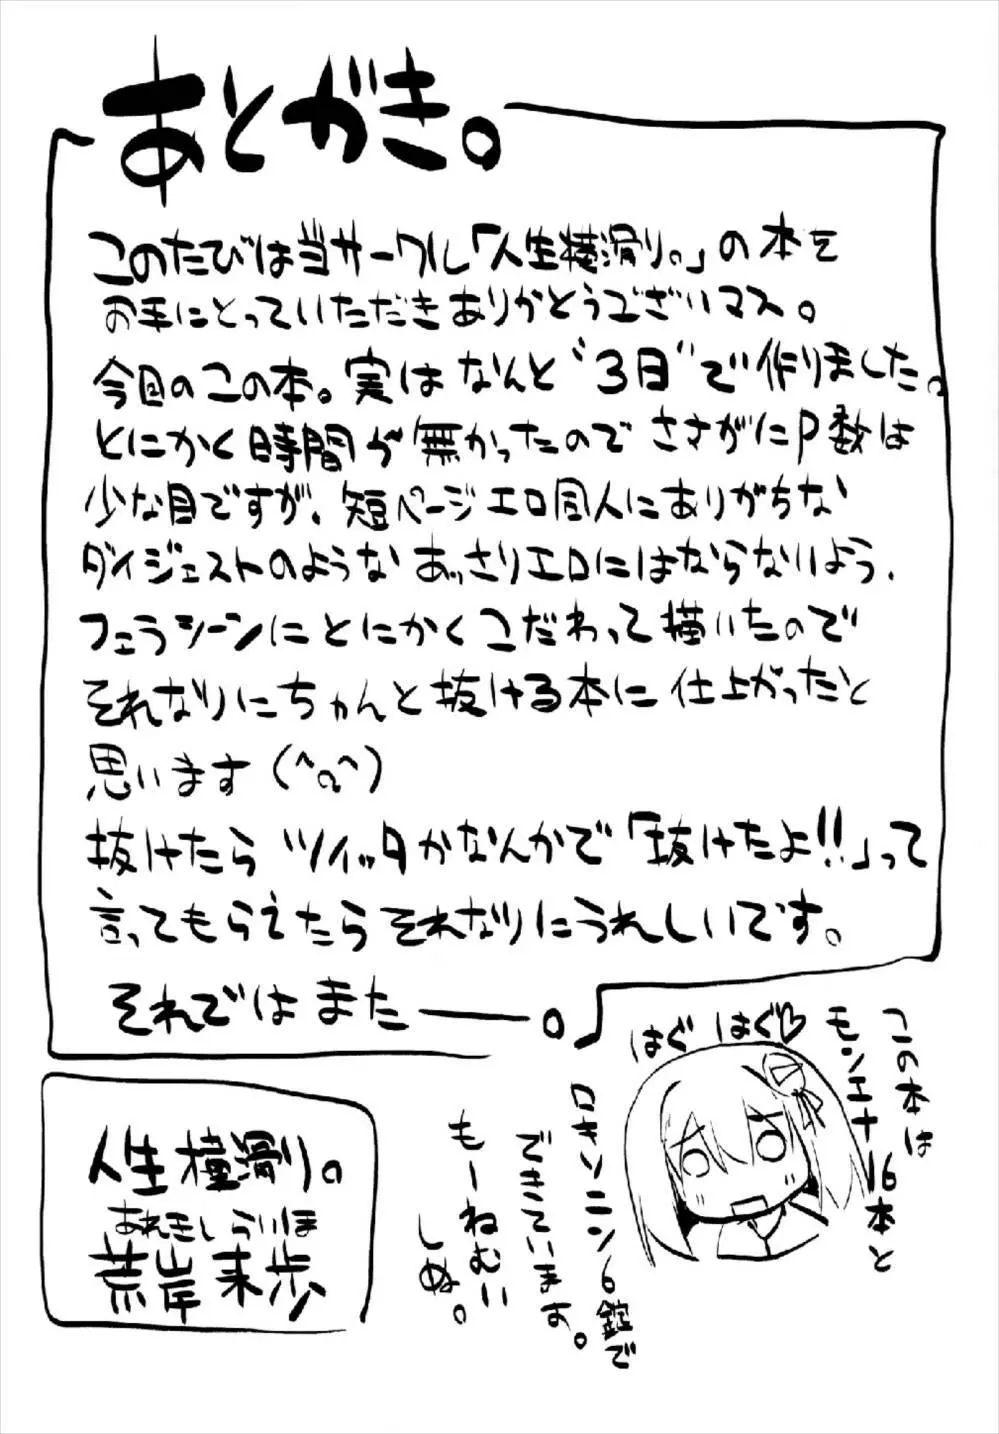 あとがき。
このたびは当サークル「人生横滑り。」の本を
お手にとっていただきありがとうございマス。
今回のこの本。実はなんと"3日"で作りました。
とにかく時間が無かったのでさすがにP数は
少な目ですが、短ページエロ同人にありがちな
ダイジェストのようなあっさりエロにはならないよう、
フェラシーンにとにかくこだわって描いたので
それなりにちゃんと抜ける本に仕上がったと
思います(^q^)
抜けたらツイッタかなんかで「抜けたよ!!」って
言ってもらえたらそれなりにうれしいです。
それではまたー。
はぐ はぐ♡
この本は
モンエナ16本と
ロキソニン6錠で
できています。
もーねむい
しぬ。
人生横滑り。
あれきしらいほ
荒岸来歩